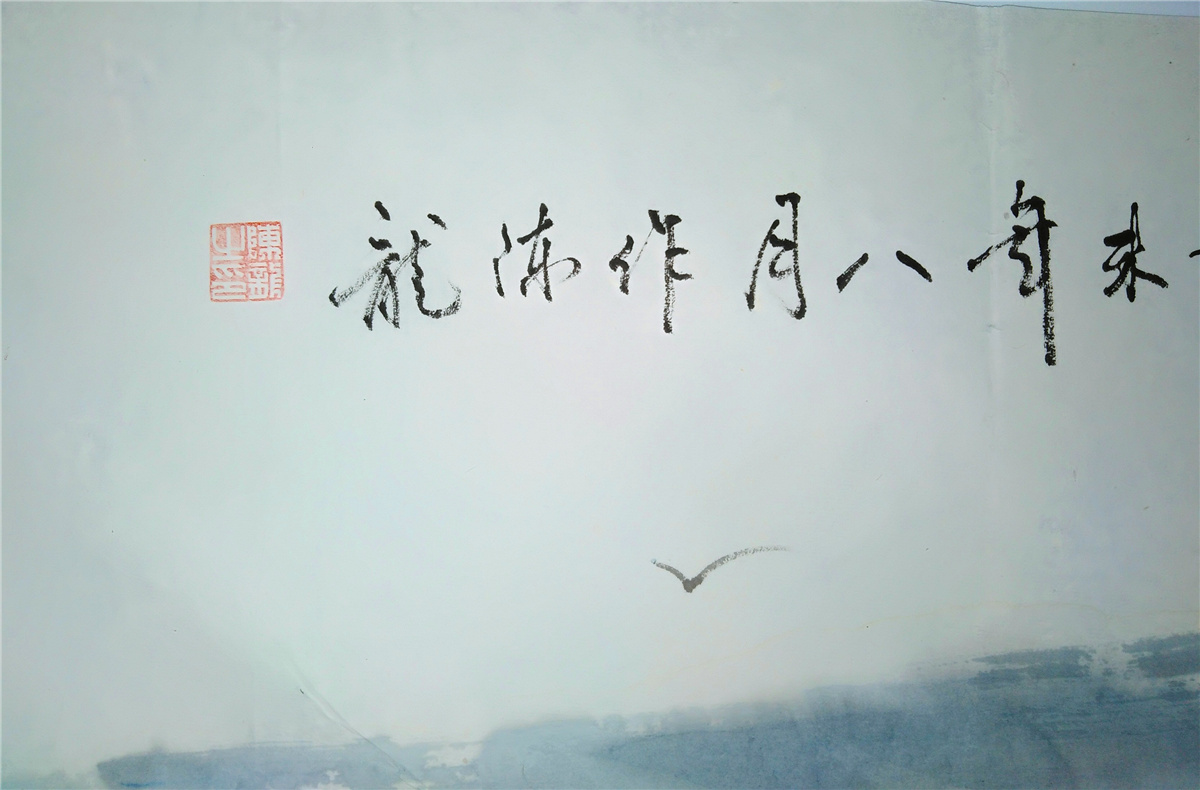 未年八月作陈龍
陳龍之印